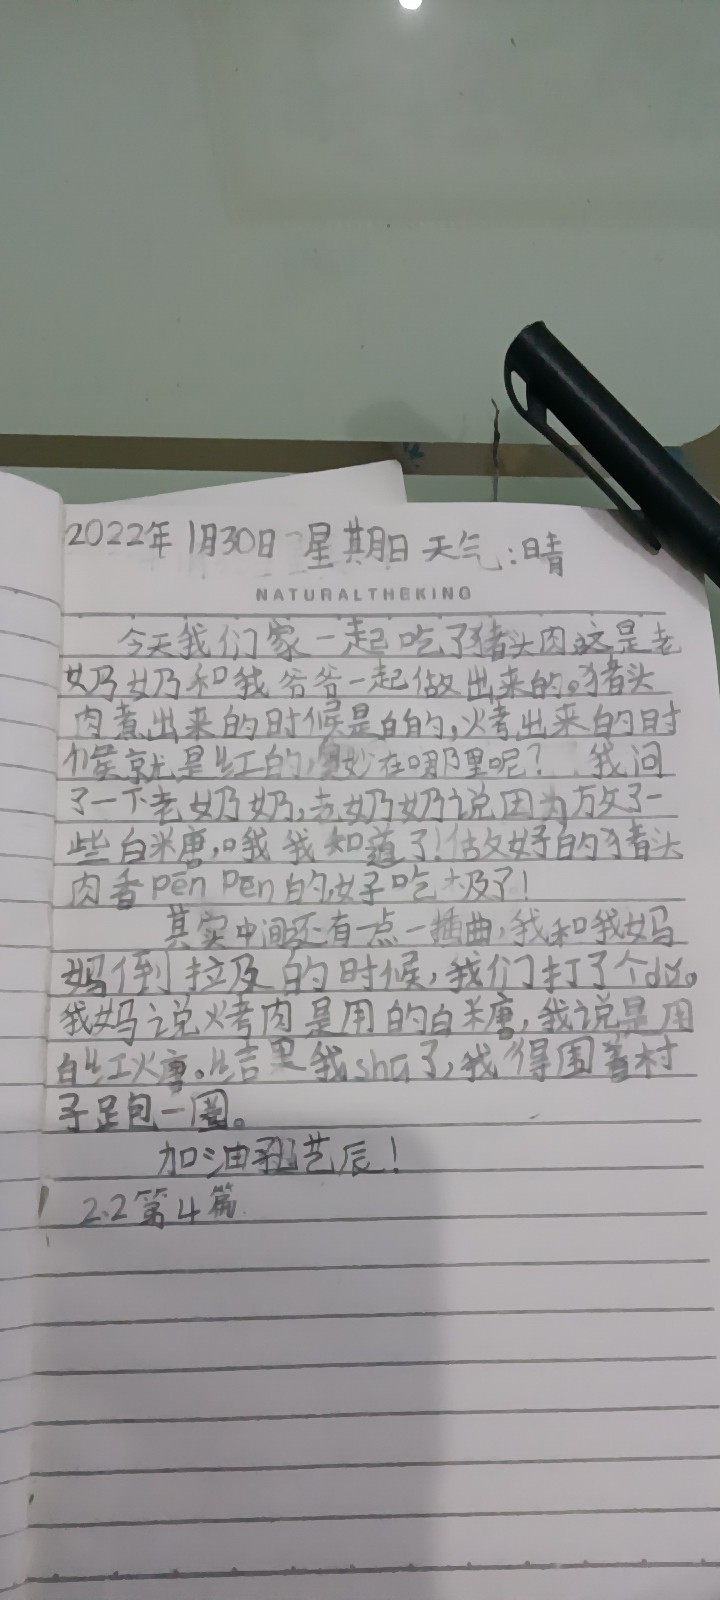 2022年1月30日 星期日 天气:晴
NATURALTHEKING
今天我们家一起吃了猪头肉这是老
奶奶和我爷爷一起做出来的。猪头
肉煮出来的时候是白的,烤出来的时
候就是红的,奥妙在哪里呢? 我问
了一下老奶奶,老奶奶说因为放了一
些白米唐,哦我知道了!做好的猪头
肉香pēn pēn的,好吃极了!
其实中间还有一点一插曲,我和我妈
妈倒拉及的时候,我们打了个dǔ。
我妈说烤肉是用的白米糖,我说是用
白红火唐。结果我shū了,我得围着村
子足包一圈。
加油 艺辰!
2.2第4篇